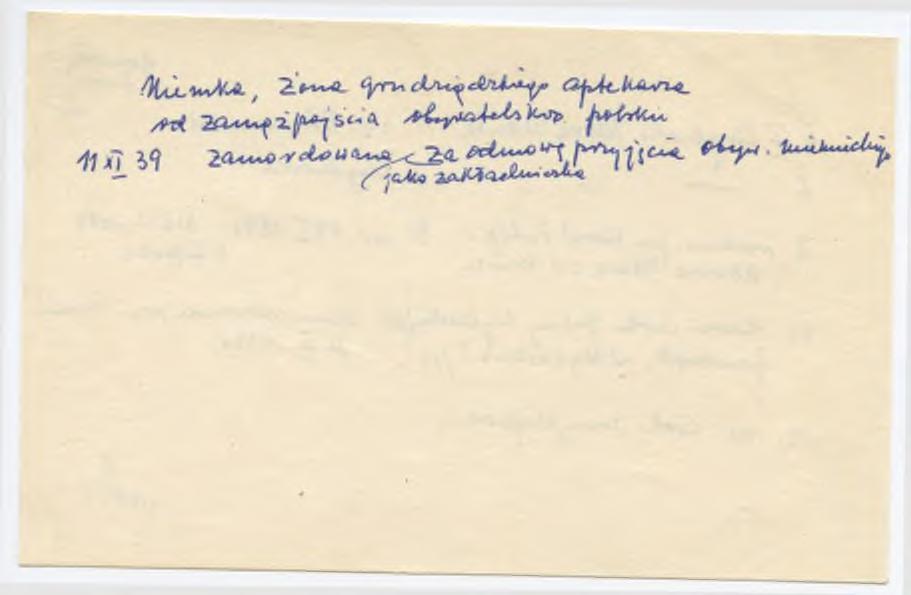 Niemka, żona grudziądzkiego aptekarza
od zamążpójścia obywatelstwo polskie
11 XI 39 zamordowana za odmowę przyjęcia obyw. niemieckiego
(jako zakładniczka